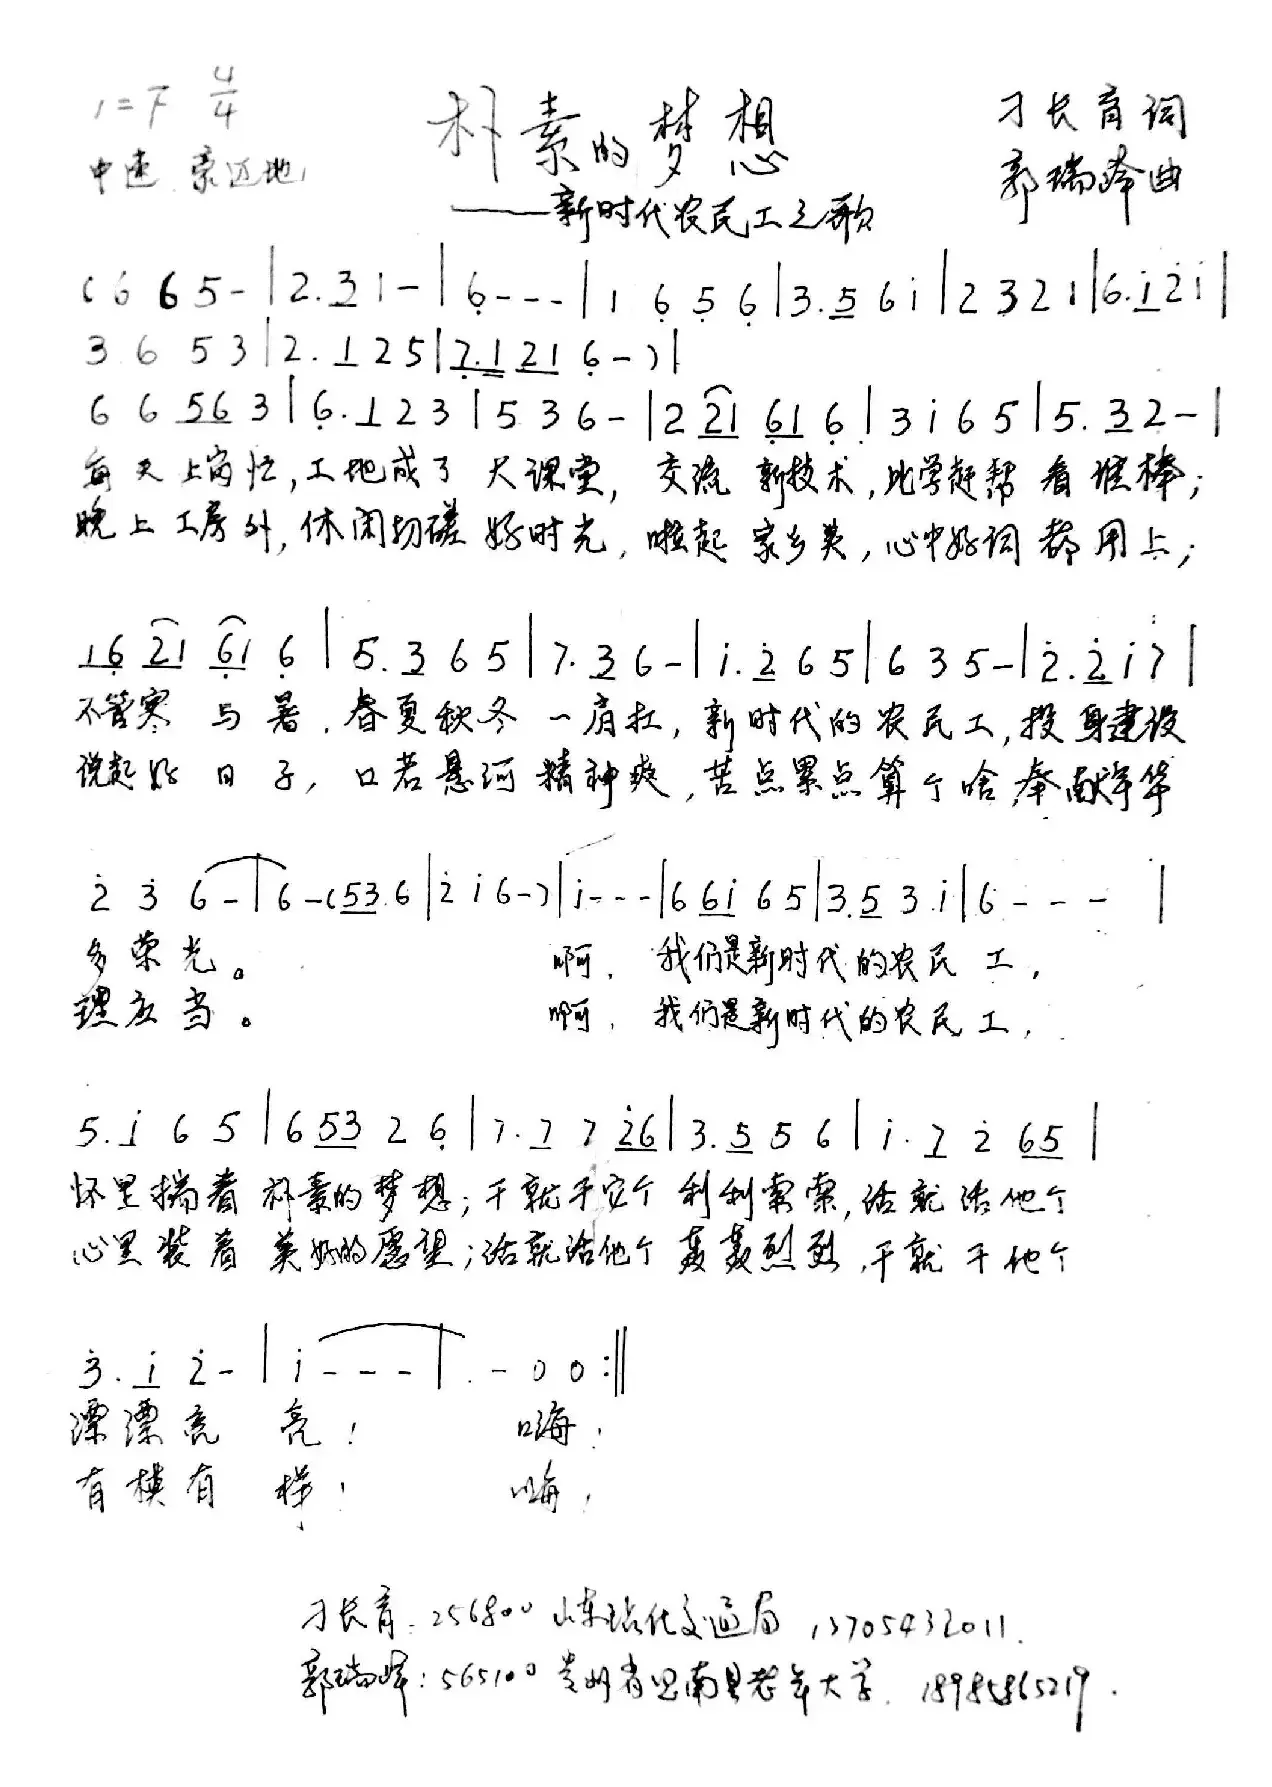 1=F 4/4
朴素的梦想
刁长育词
中速 豪迈地
郭瑞峰曲
——新时代农民工之歌
(6 6 6 5 - | 2. 3 1 - | 6 - - - | 1 6 5 6 | 3. 5 6 i | 2 3 2 1 | 6. i 2 i |
3 6 5 3 | 2. 1 2 5 | 7. 1 2 1 6 - ) |
6 6 5 6 3 | 6. 1 2 3 | 5 3 6 - | 2 2 1 6 1 6 | 3 i 6 5 | 5. 3 2 - |
每天上岗忙,工地成了 大课堂, 交流 新技术,比学赶帮 看谁棒;
晚上工房外,休闲切磋 好时光, 啦起 家乡美,心中好词 都用上;
1 6 2 1 6 1 6 | 5. 3 6 5 | 7. 3 6 - | i. 2 6 5 | 6 3 5 - | 2. 2 i 7 |
不管寒 与 暑,春夏秋冬 一肩扛, 新时代的 农民工,投身建设
说起好 日 子, 口若悬河 精神爽,苦点累点 算个啥,奉献年华
2 3 6 - | 6 - ( 5 3 6 | 2 i 6 - ) | i - - - | 6 6 i 6 5 | 3. 5 3 i | 6 - - - |
多荣光。 啊, 我们是新时代的农民 工,
理应当。 啊, 我们是新时代的农民 工,
5. i 6 5 | 6 5 3 2 6 | 7. 7 7 2 6 | 3. 5 5 6 | i. 7 2 6 5 |
怀里揣着 朴素的梦想;干就干它个 利利索索,活就活他个
心里装着 美好的愿望;活就活他个 轰轰烈烈,干就干他个
3. i 2 - | i - - - | - 0 0 :||
漂漂亮 亮! 嗨!
有模有 样! 嗨!
刁长育:256800 山东沾化交通局 13705432011.
郭瑞峰:565100 贵州省思南县老年大学 18985865219.